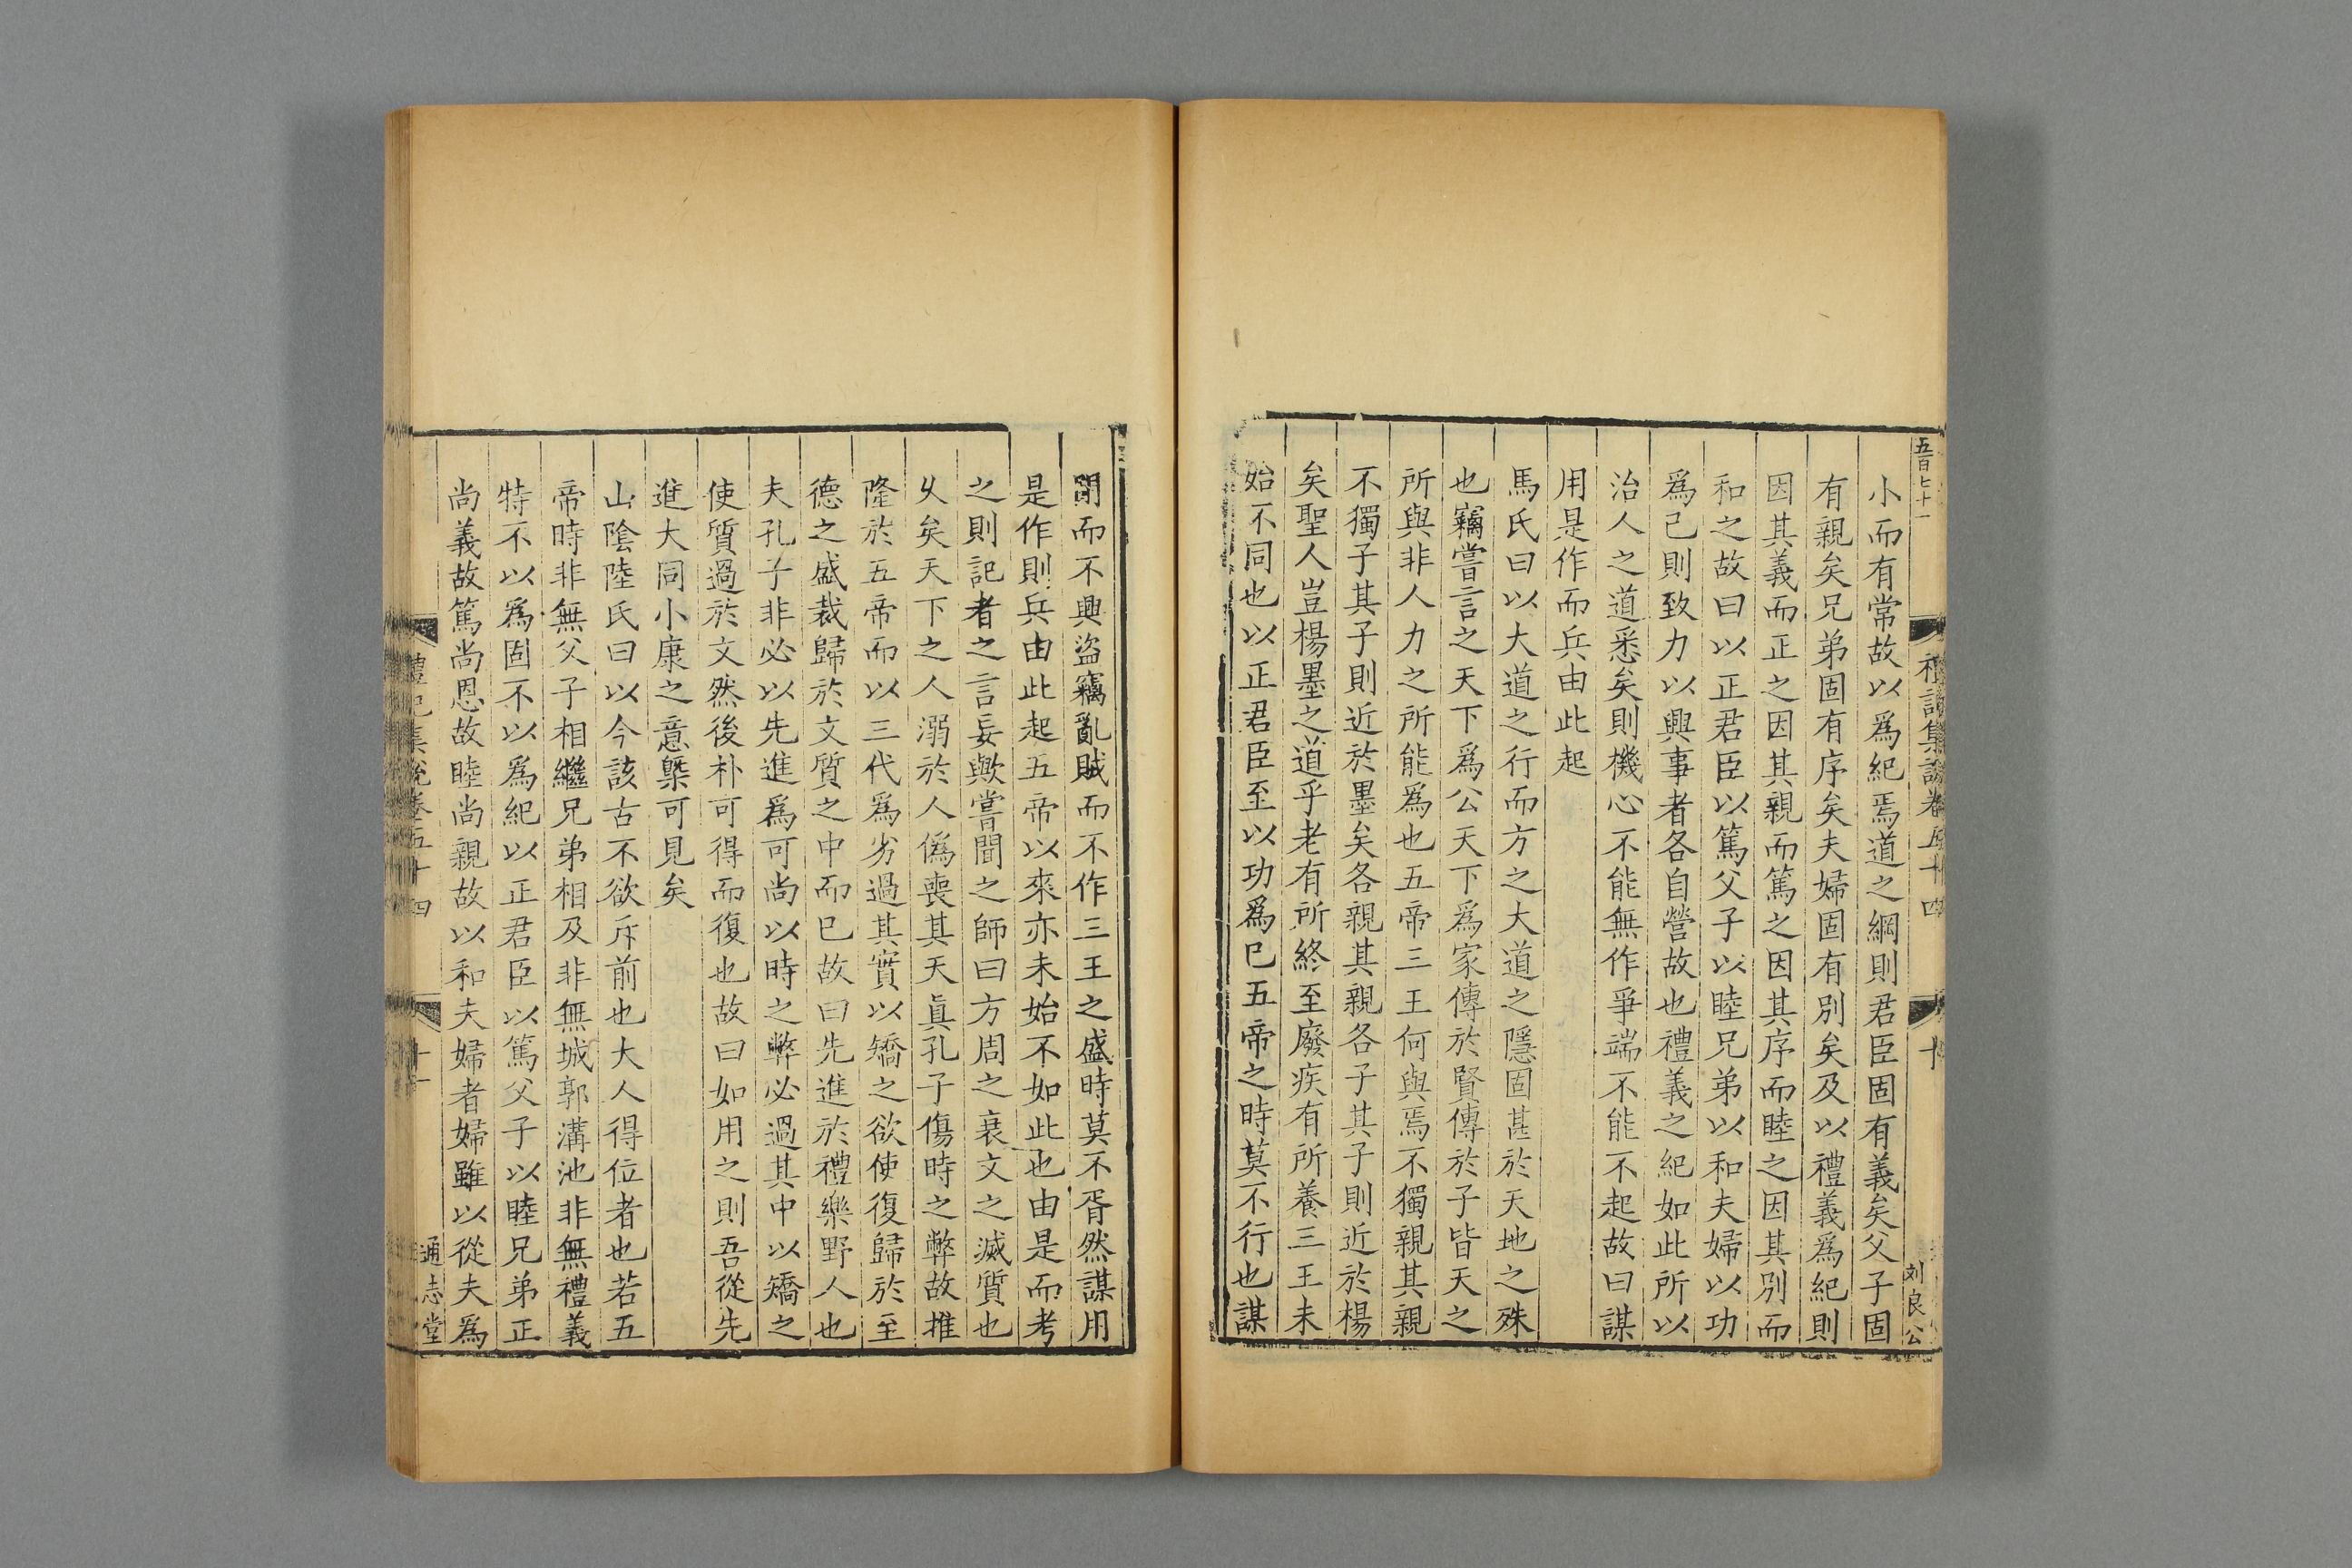 五百七十一
禮記集說卷五十四
十
刘良公
小而有常故以爲紀焉道之綱則君臣固有義矣父子固
有親矣兄弟固有序矣夫婦固有別矣及以禮義爲紀則
因其義而正之因其親而篤之因其序而睦之因其別而
和之故曰以正君臣以篤父子以睦兄弟以和夫婦以功
爲己則致力以興事者各自營故也禮義之紀如此所以
治人之道悉矣則機心不能無作爭端不能不起故曰謀
用是作而兵由此起
馬氏曰以大道之行而方之大道之隱固甚於天地之殊
也竊嘗言之天下爲公天下爲家傳於賢傳於子皆天之
所與非人力之所能爲也五帝三王何與焉不獨親其親
不獨子其子則近於墨矣各親其親各子其子則近於楊
矣聖人豈楊墨之道乎老有所終至廢疾有所養三王未
始不同也以正君臣至以功爲已五帝之時莫不行也謀
閉而不興盜竊亂賊而不作三王之盛時莫不胥然謀用
是作則兵由此起五帝以來亦未始不如此也由是而考
之則記者之言妄歟嘗聞之師曰方周之衰文之滅質也
乆矣天下之人溺於人僞喪其天眞孔子傷時之弊故推
隆於五帝而以三代爲劣過其實以矯之欲使復歸於至
德之盛裁歸於文質之中而已故曰先進於禮樂野人也
夫孔子非必以先進爲可尚以時之弊必過其中以矯之
使質過於文然後朴可得而復也故曰如用之則吾從先
進大同小康之意槩可見矣
山陰陸氏曰以今該古不欲斥前也大人得位者也若五
帝時非無父子相繼兄弟相及非無城郭溝池非無禮義
特不以爲固不以爲紀以正君臣以篤父子以睦兄弟正
尚義故篤尚恩故睦尚親故以和夫婦者婦雖以從夫爲
禮記集說卷五十四
十一
通志堂